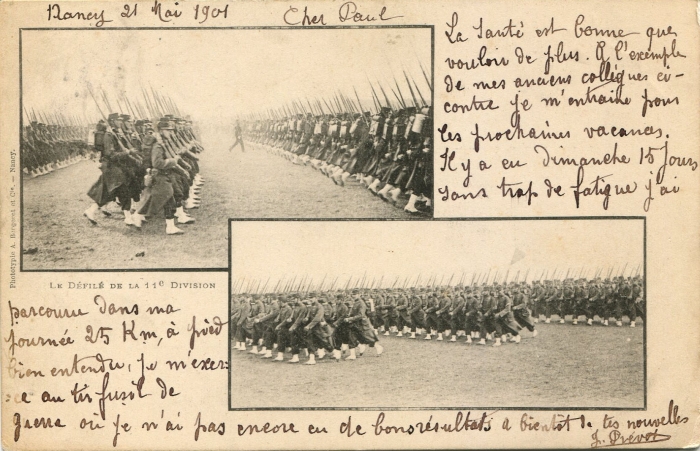 Nancy 21 Mai 1901 Cher Paul
La santé est bonne que
vouloir de plus. A l'exemple
de mes anciens collègues ci-
contre je m'entraine pour
les prochaines vacances.
Il y a eu Dimanche 15 Jours
sans trop de fatigue j'ai
Phototypie A. Bergeret et Cie. — Nancy.
LE DÉFILÉ DE LA 11e DIVISION
parcouru dans ma
journée 25 Km, à pied
bien entendu, je m'exer-
ce au tir fusil de
guerre où je n'ai pas encore eu de bons résultats a bientôt de tes nouvelles
J. Prévot